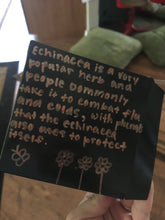 Echinacea is a very
popular herb and
people commonly
take is to combat flu
and colds, with plants
that the echinacea
also uses to protect
itsers.